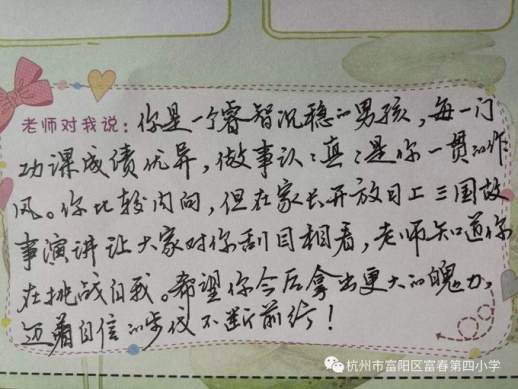 老师对我说：你是一个睿智沉稳的男孩，每一门
功课成绩优异，做事认认真真是你一贯的作
风。你比较内向，但在家长开放日上三国故
事演讲让大家对你刮目相看，老师知道你
在挑战自我。希望你今后拿出更大的魄力，
迈着自信的步伐不断前行！
杭州市富阳区富春第四小学